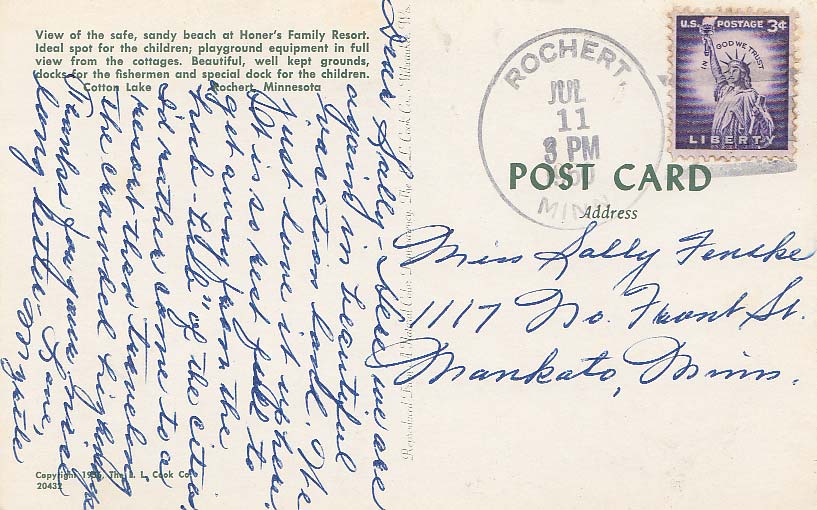 View of the safe, sandy beach at Honer's Family Resort.
Ideal spot for the children; playground equipment in full
view from the cottages. Beautiful, well kept grounds,
docks for the fishermen and special dock for the children.
Cotton Lake Rochert, Minnesota
Dear Sally - Here we are
again in beautiful
vacation land. We
just love it up here.
It is so restful to
get away from the
"hub-bub" of the cities.
I'd rather come to a
resort than traveling
the crowded highways.
Thanks for your nice
long letter - Love,
Copyright The L. L. Cook Co.
20432
The L. L. Cook Co., Milwaukee, Wis.
ROCHERT,
JUL
11
3 PM
MINN
U.S. POSTAGE 3¢
IN GOD WE TRUST
LIBERTY
POST CARD
Address
Miss Sally Fenske
1117 No. Front St.
Mankato, Minn.